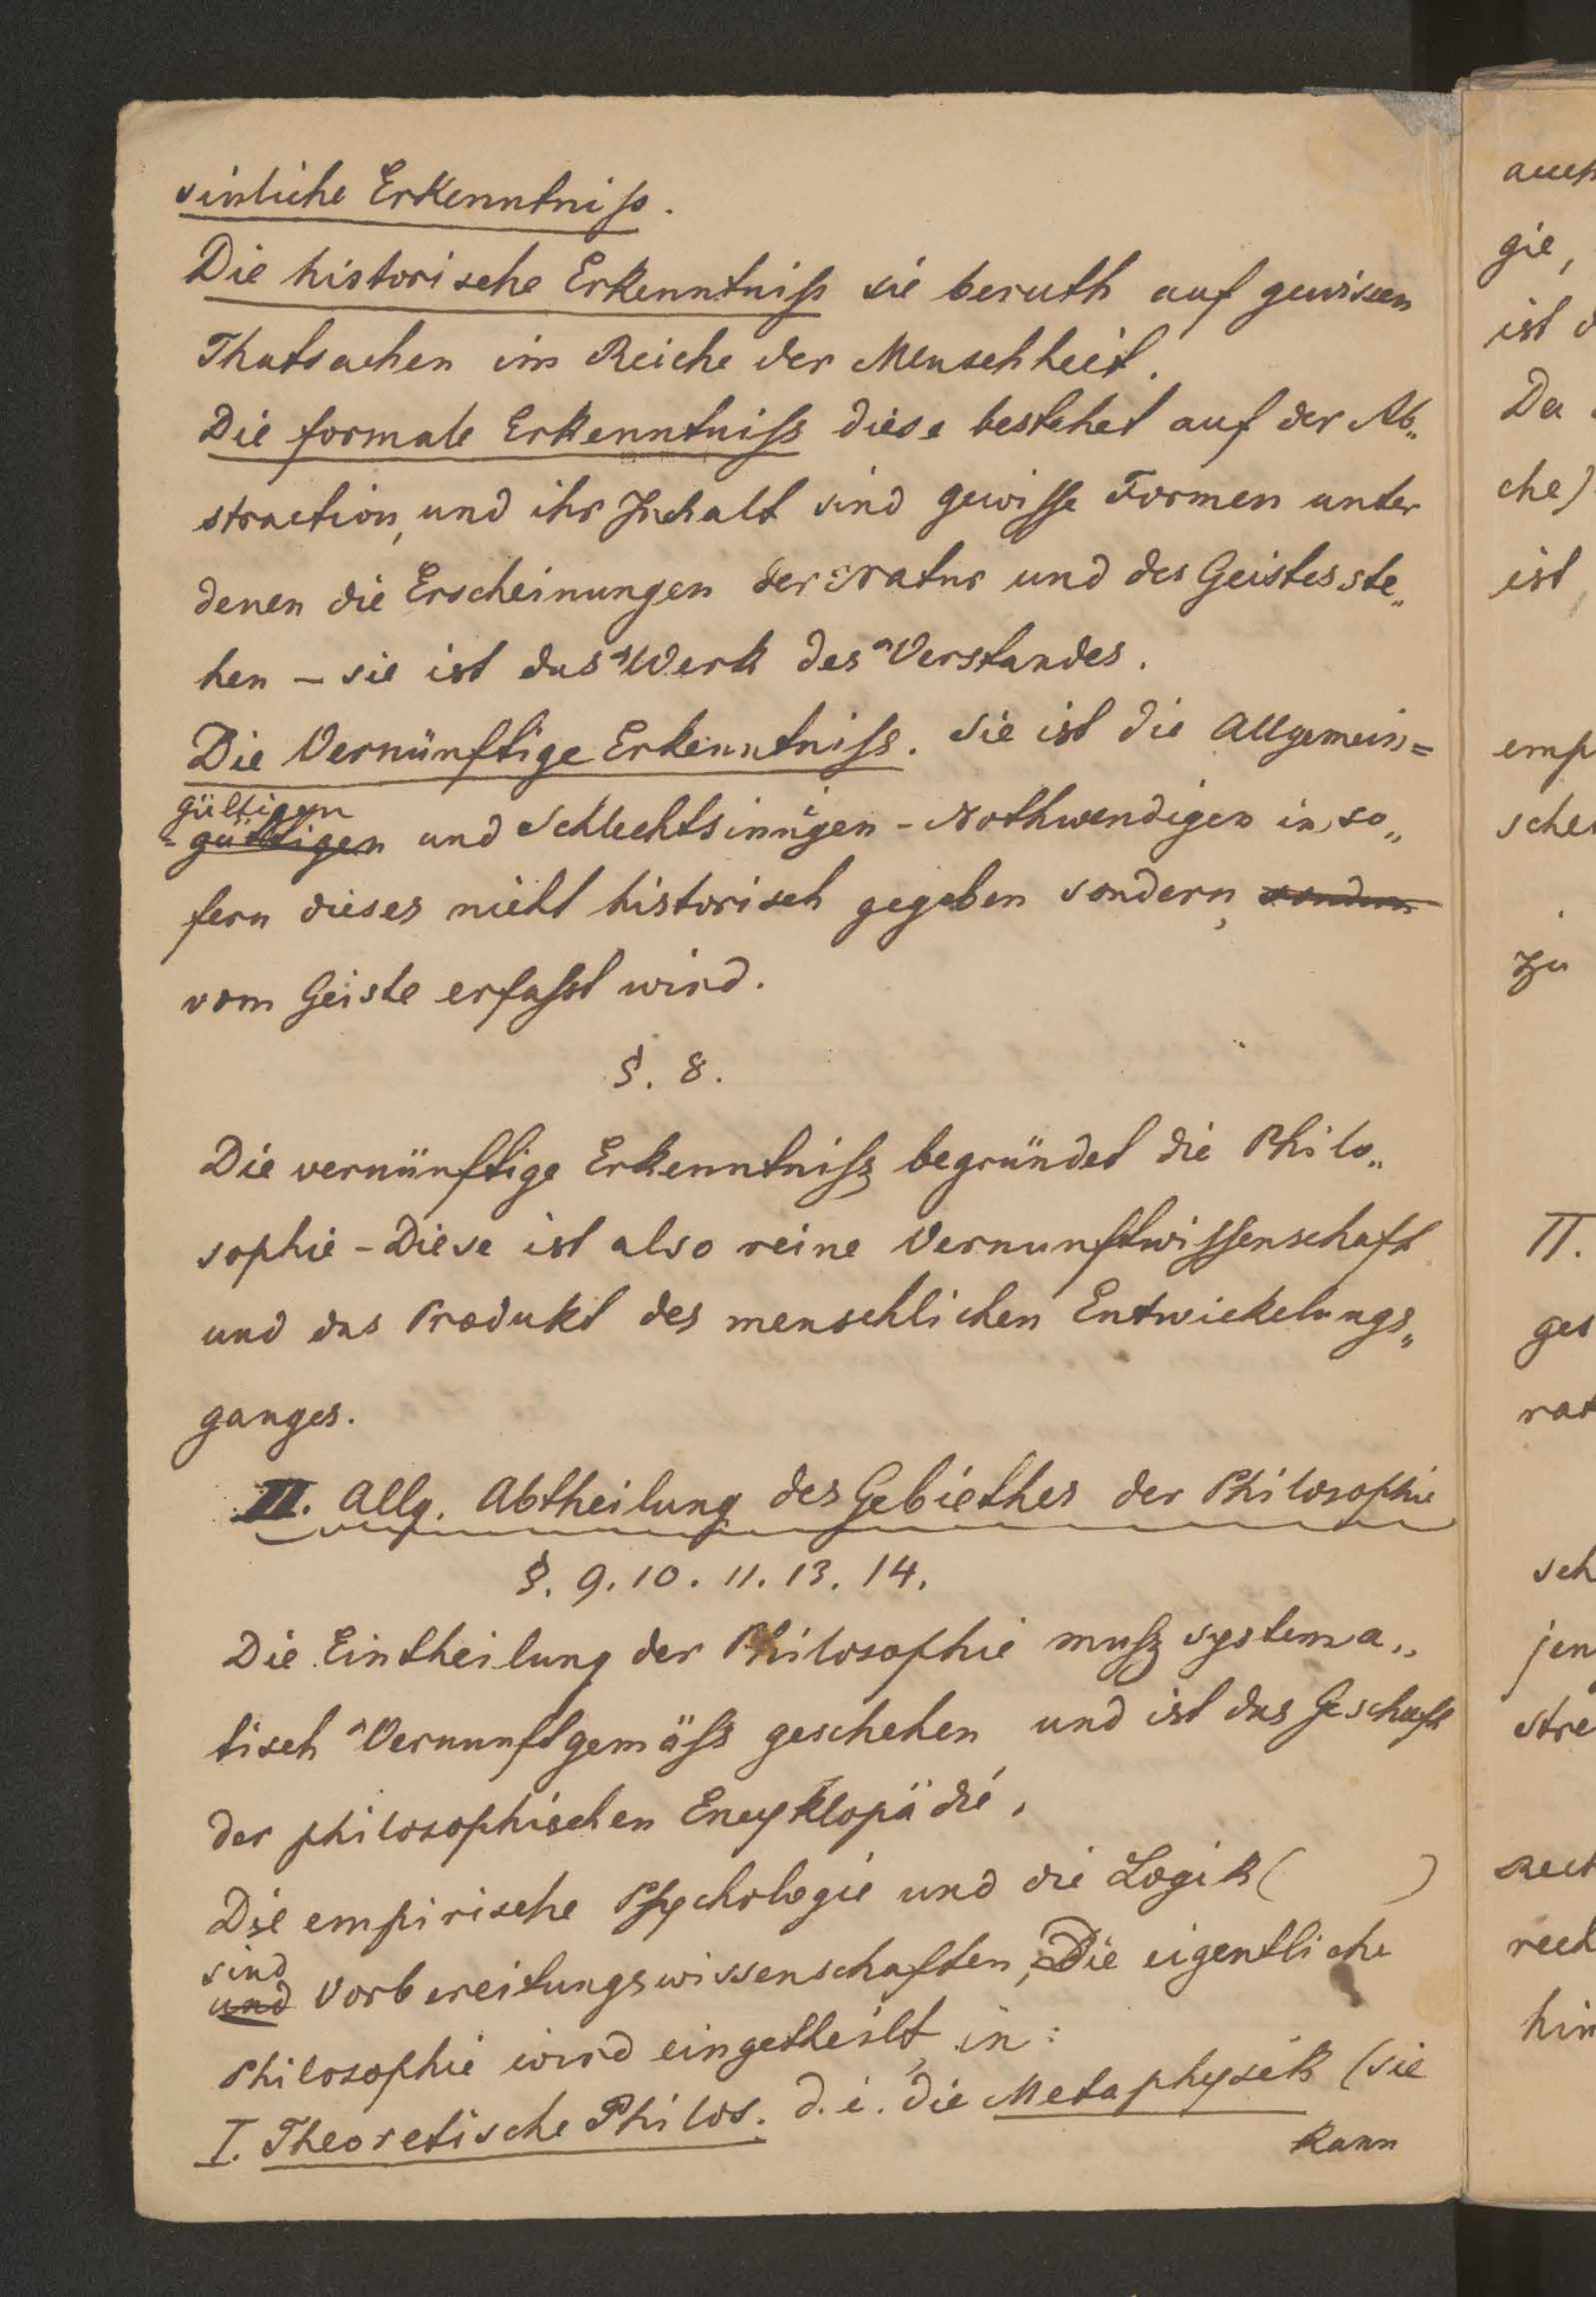 sinliche Erkenntniß.
Die historische Erkenntniß sie beruth auf gewissen
Thatsachen im Reiche der Menschheit.
Die formale Erkenntniß diese bestehet auf der Ab„
straction, und ihr Inhalt sind gewisse Formen unter
denen die Erscheinungen der Natur und des Geistes ste„
hen – sie ist das Werk des Verstandes.
Die Vernünftige Erkenntniß. Sie ist die Allgemein=
gültigen
und Schlechtsinnigen - Nothwendigen in so„
fern dieses nicht historisch gegeben sondern, sondern
vom Geiste erfaßt wird.
§. 8.
Die vernünftige Erkenntniß begründet die Philo„
sophie - Diese ist also reine Vernunftwissenschaft
und das Produkt des menschlichen Entwickelungs„
ganges.
II. Allg. Abtheilung des Gebiethes der Philosophie
§. 9. 10. 11. 13. 14.
Die Eintheilung der Philosophie muß systema„
tisch Vernunftgemäß geschehen und ist das Geschäft
der philosophischen Encyklopädie.
Die empirische Psychologie und die Logik ( )
sind
und Vorbereitungswissenschaften, Die eigentliche
Philosophie wird eingetheilt in:
I. Theoretische Philos. d. i. die Metaphysik (sie
kann
auch
gie,
ist d
Da
che)
ist,
emp
sche
zu
II.
ges
rat
sch
jen
stre
rech
hin